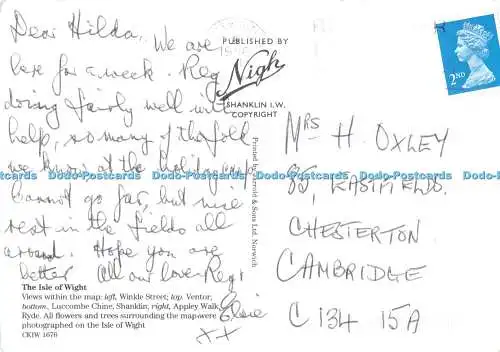 Dear Hilda, We are
here for a week. Reg
doing fairly well with
help, so many of the folk
we know at the holiday
Cannot go far, but nice
rest in the fields all
around. Hope you are
better All our love Reg &
Elsie
xx
PUBLISHED BY
Nigh
SHANKLIN I.W.
COPYRIGHT
Printed by Jarrold & Sons Ltd. Norwich
2ND
MRS H. OXLEY
85, EASTFIELD.
CHESTERTON
CAMBRIDGE
The Isle of Wight
Views within the map: left, Winkle Street; top, Ventor;
bottom, Luccombe Chine, Shanklin; right, Appley Walk,
Ryde. All flowers and trees surrounding the map were
photographed on the Isle of Wight
CKIW 1676
Dodo-Postcards Dodo-Postcards Dodo-Postcards Dodo-Postcards Dodo-Postcards